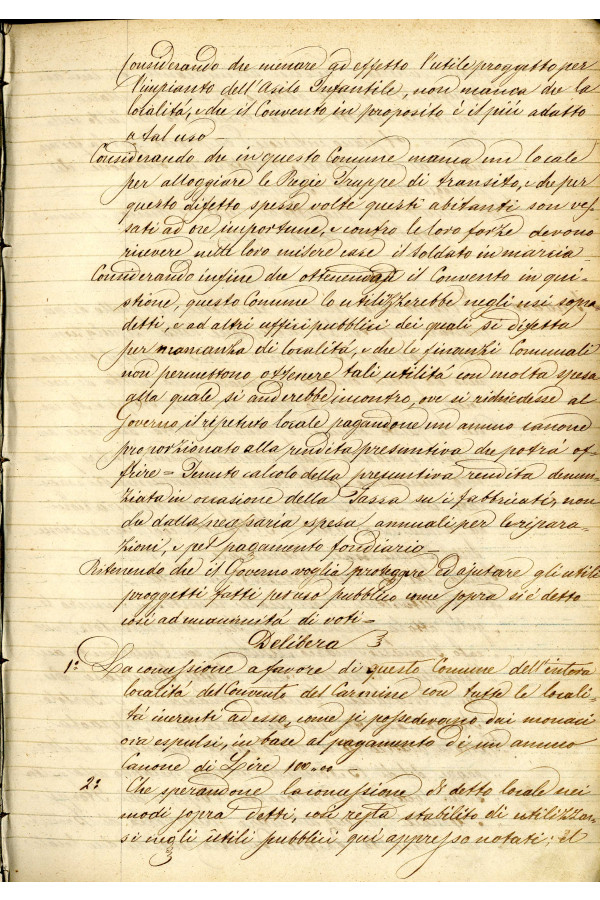 Considerando che menare ad effetto l'utile proggetto per
l'impianto dell'Asilo Infantile, non manca che la
località, e che il Convento in proposito è il più adatto
a tal uso
Considerando che in questo Comune manca un locale
per alloggiare le Regie Truppe di transito, e che per
questo difetto spesse volte questi abitanti son ves-
sati ad ore importune, e contro le loro forze devono
ricevere nelle loro misere case il soldato in marcia
Considerando infine che ottenendosi il Convento in qui-
stione, questo Comune lo utilizzerebbe negli usi sopra
detti, e ad altri uffici pubblici dei quali si difetta
per mancanza di località, e che le finanze Comunali
non permettono ottenere tali utilità con molta spesa
alla quale si anderebbe incontro, ove si richiedesse al
Governo, il ripetuto locale pagandone un annuo canone
proporzionato alla rendita presuntiva che potrà of-
frire = Tenuto calcolo della presuntiva rendita denun-
ziata in occasione della Tassa su i fabbricati, non
che dalla necessaria spesa annuali per le ripara-
zioni, e pel pagamento fondiario =
Ritenendo che il Governo voglia proteggere ed ajutare gli utili
proggetti fatti per uso pubblico come sopra si è detto
così ad unanimità di voti =
Delibera
1º La concessione a favore di questo Comune dell'intera
località del Convento del Carmine con tutte le locali-
tà inerenti ad esso, come si possedevano dai monaci
ora espulsi, in base al pagamento di un annuo
Canone di Lire 100,00 =
2º Che sperandone la concessione di detto locale nei
modi sopra detti, così resta stabilito di utilizzar-
si negli utili pubblici qui appresso notati; il